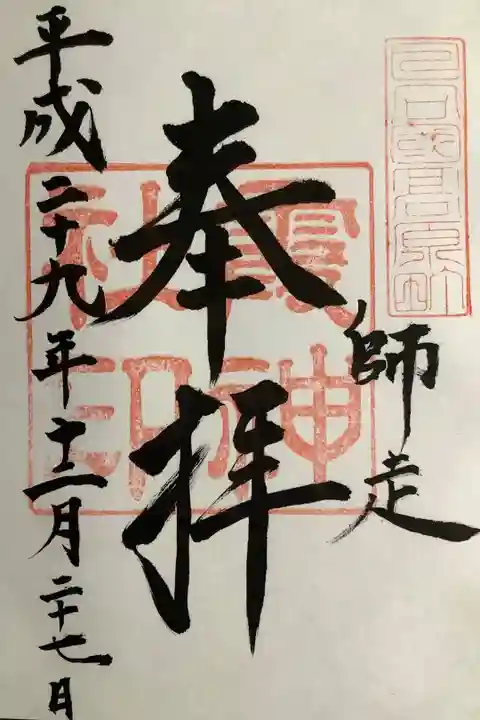 師走
奉拝
平成二十九年十二月二十七日
霞神
社
印